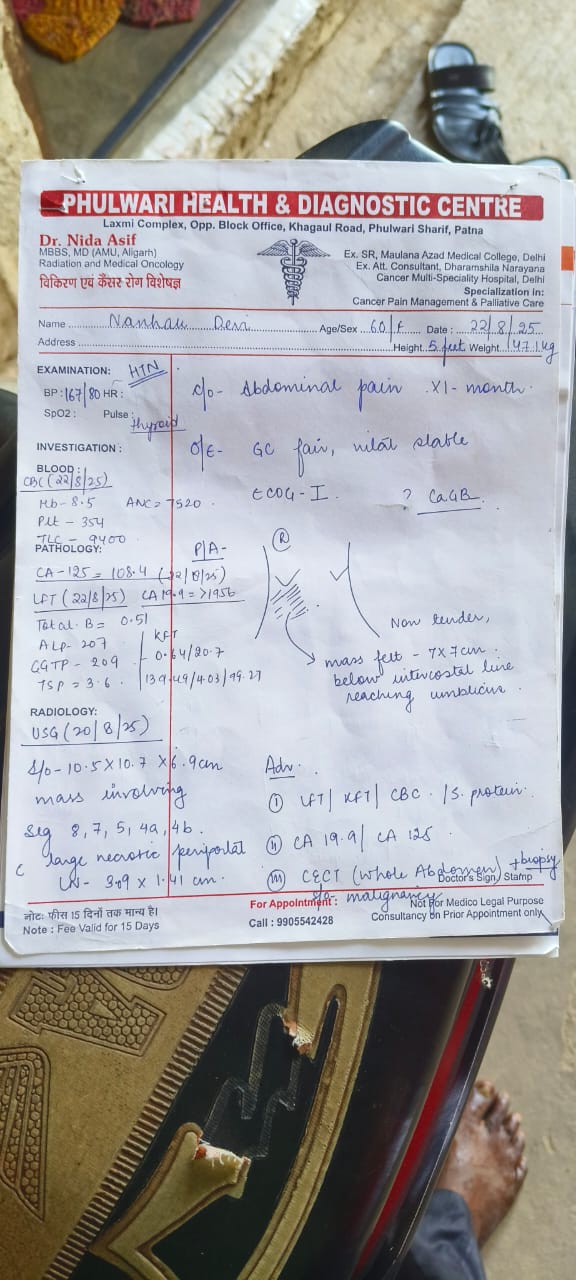 PHULWARI HEALTH & DIAGNOSTIC CENTRE
Laxmi Complex, Opp. Block Office, Khagaul Road, Phulwari Sharif, Patna
Dr. Nida Asif
MBBS, MD (AMU, Aligarh)
Radiation and Medical Oncology
विकिरण एवं कैंसर रोग विशेषज्ञ
Ex. SR, Maulana Azad Medical College, Delhi
Ex. Att. Consultant, Dharamshila Narayana
Cancer Multi-Speciality Hospital, Delhi
Specialization in:
Cancer Pain Management & Palliative Care
Name Devi Age/Sex 60/F Date : 22/8/25
Address Height 5 feet Weight 47.1 kg
EXAMINATION: HTN
BP: 167/80 HR:
SpO2 : Pulse :
thyroid
c/o- Abdominal pain x1-month.
O/E- GC fair, stable
ECOG-I. ? CaGB.
INVESTIGATION :
BLOOD :
CBC (22/8/25)
Hb-8.5 ANC= 7520
Plt - 354
TLC - 9400
PATHOLOGY:
CA-125 = 108.4 (22/8/25)
LFT (22/8/25) CA 19.9 = >1956
Total. B = 0.51
ALP- 207
GGTP- 209
TSP= 3.6
KFT
0.64/20.7
139.49/4.03/99.27
P/A-
R
Non tender,
mass felt - 7x7cm.
below intercostal line
reaching umblicus.
RADIOLOGY:
USG (20/8/25)
S/o- 10.5 x 10.7 x 6.9cm
mass involving
Seg 8, 7, 5, 4a, 4b.
c large necrotic periportal
LN- 3.09 x 1.41 cm.
Adv.
I LFT/ KFT/ CBC. /S. protein.
II CA 19.9/ CA 125
III CECT (Whole Abdomen) + biopsy
malignancy
Doctor's Sign/ Stamp
नोट: फीस 15 दिनों तक मान्य है।
Note : Fee Valid for 15 Days
For Appointment :
Call : 9905542428
Not For Medico Legal Purpose
Consultancy on Prior Appointment only